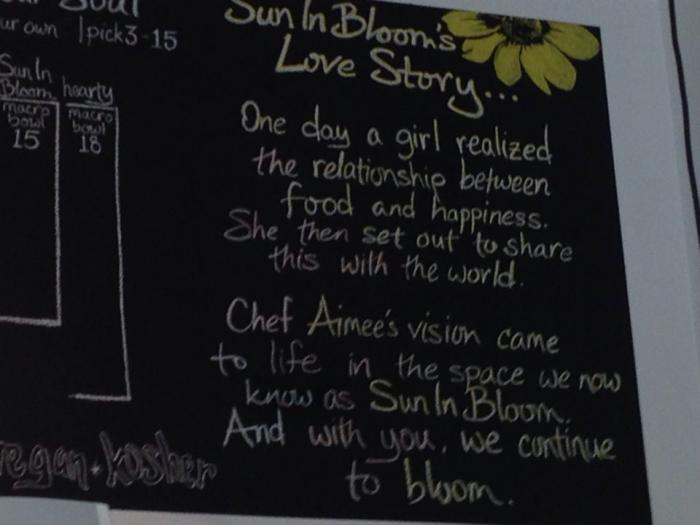 Soul
ur own | pick 3 - 15
Sun In
Bloom
macro
bowl
15
hearty
macro
bowl
18
Sun In Bloom's
Love Story...
One day a girl realized
the relationship between
food and happiness.
She then set out to share
this with the world.
Chef Aimee's vision came
to life in the space we now
know as Sun In Bloom.
And with you, we continue
to bloom.
vegan • kosher